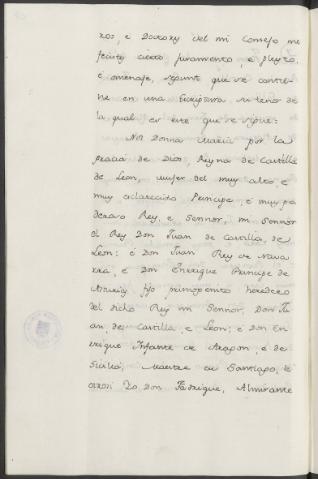 ros, e Doctors del mi Consejo me
fecistes cierto juramento e pleyto,
e omenaje, segunt que se contie-
ne en una Escriptura su tenor de
la qual es este que se sigue:
Nos Donna Maria por la
gracia de Dios, Reyna de Castilla
de Leon, muger del muy alto, e
muy esclarecido Principe, e muy po
deroso Rey, e Sennor, mi Sennor
el Rey Don Juan de Castilla, de
Leon: é Don Juan Rey de Nava
rra, é Don Enrique Principe de
Asturias fijo primogenito heredero
del dicho Rey mi Sennor, Don Ju
an, de Castilla, e Leon; é Don En
rrique Infante de Aragon, e de
Sicilia, Maestre de Santiago, é
Yo Don Fadrique, Almirante